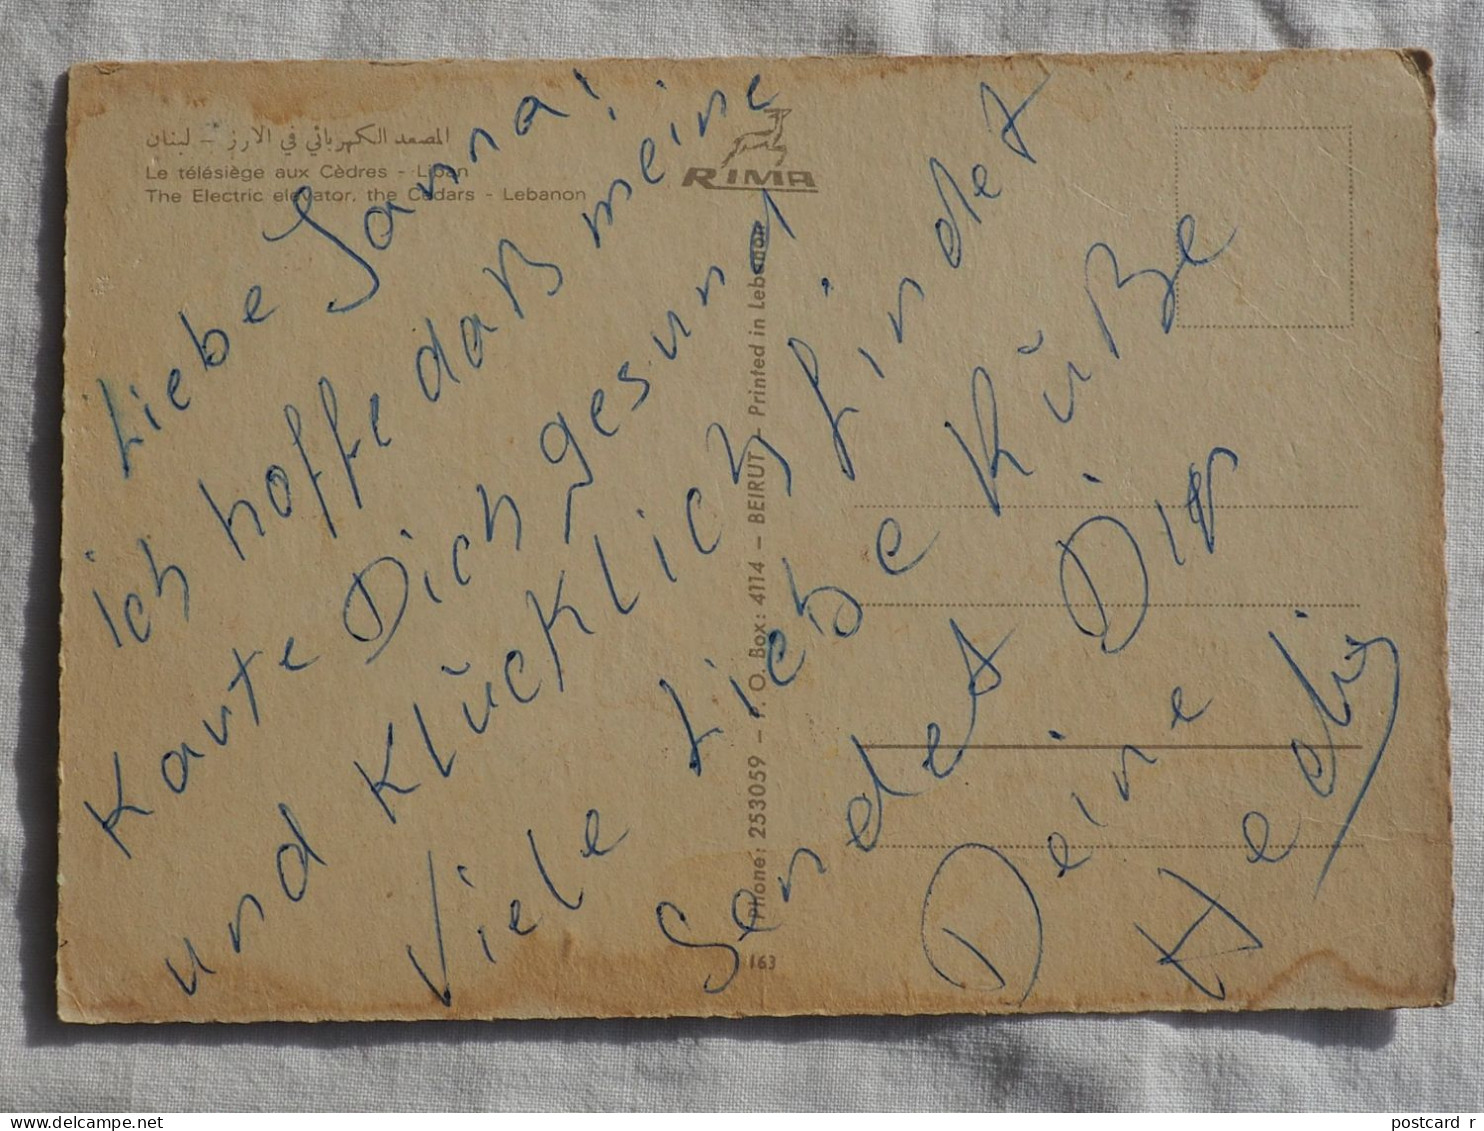 المصعد الكهربائي في الارز - لبنان
Le télésiège aux Cèdres - Liban
The Electric elevator, the Cedars - Lebanon
RIMA
Liebe Sanna!
ich hoffe daß meine
Karte Dich gesund
und klücklich findet
Viele Liebe Küße
sendet Dir
Deine
Hedi
Phone: 253059 - P. O. Box: 4114 - BEIRUT - Printed in Lebanon
163
postcard_r